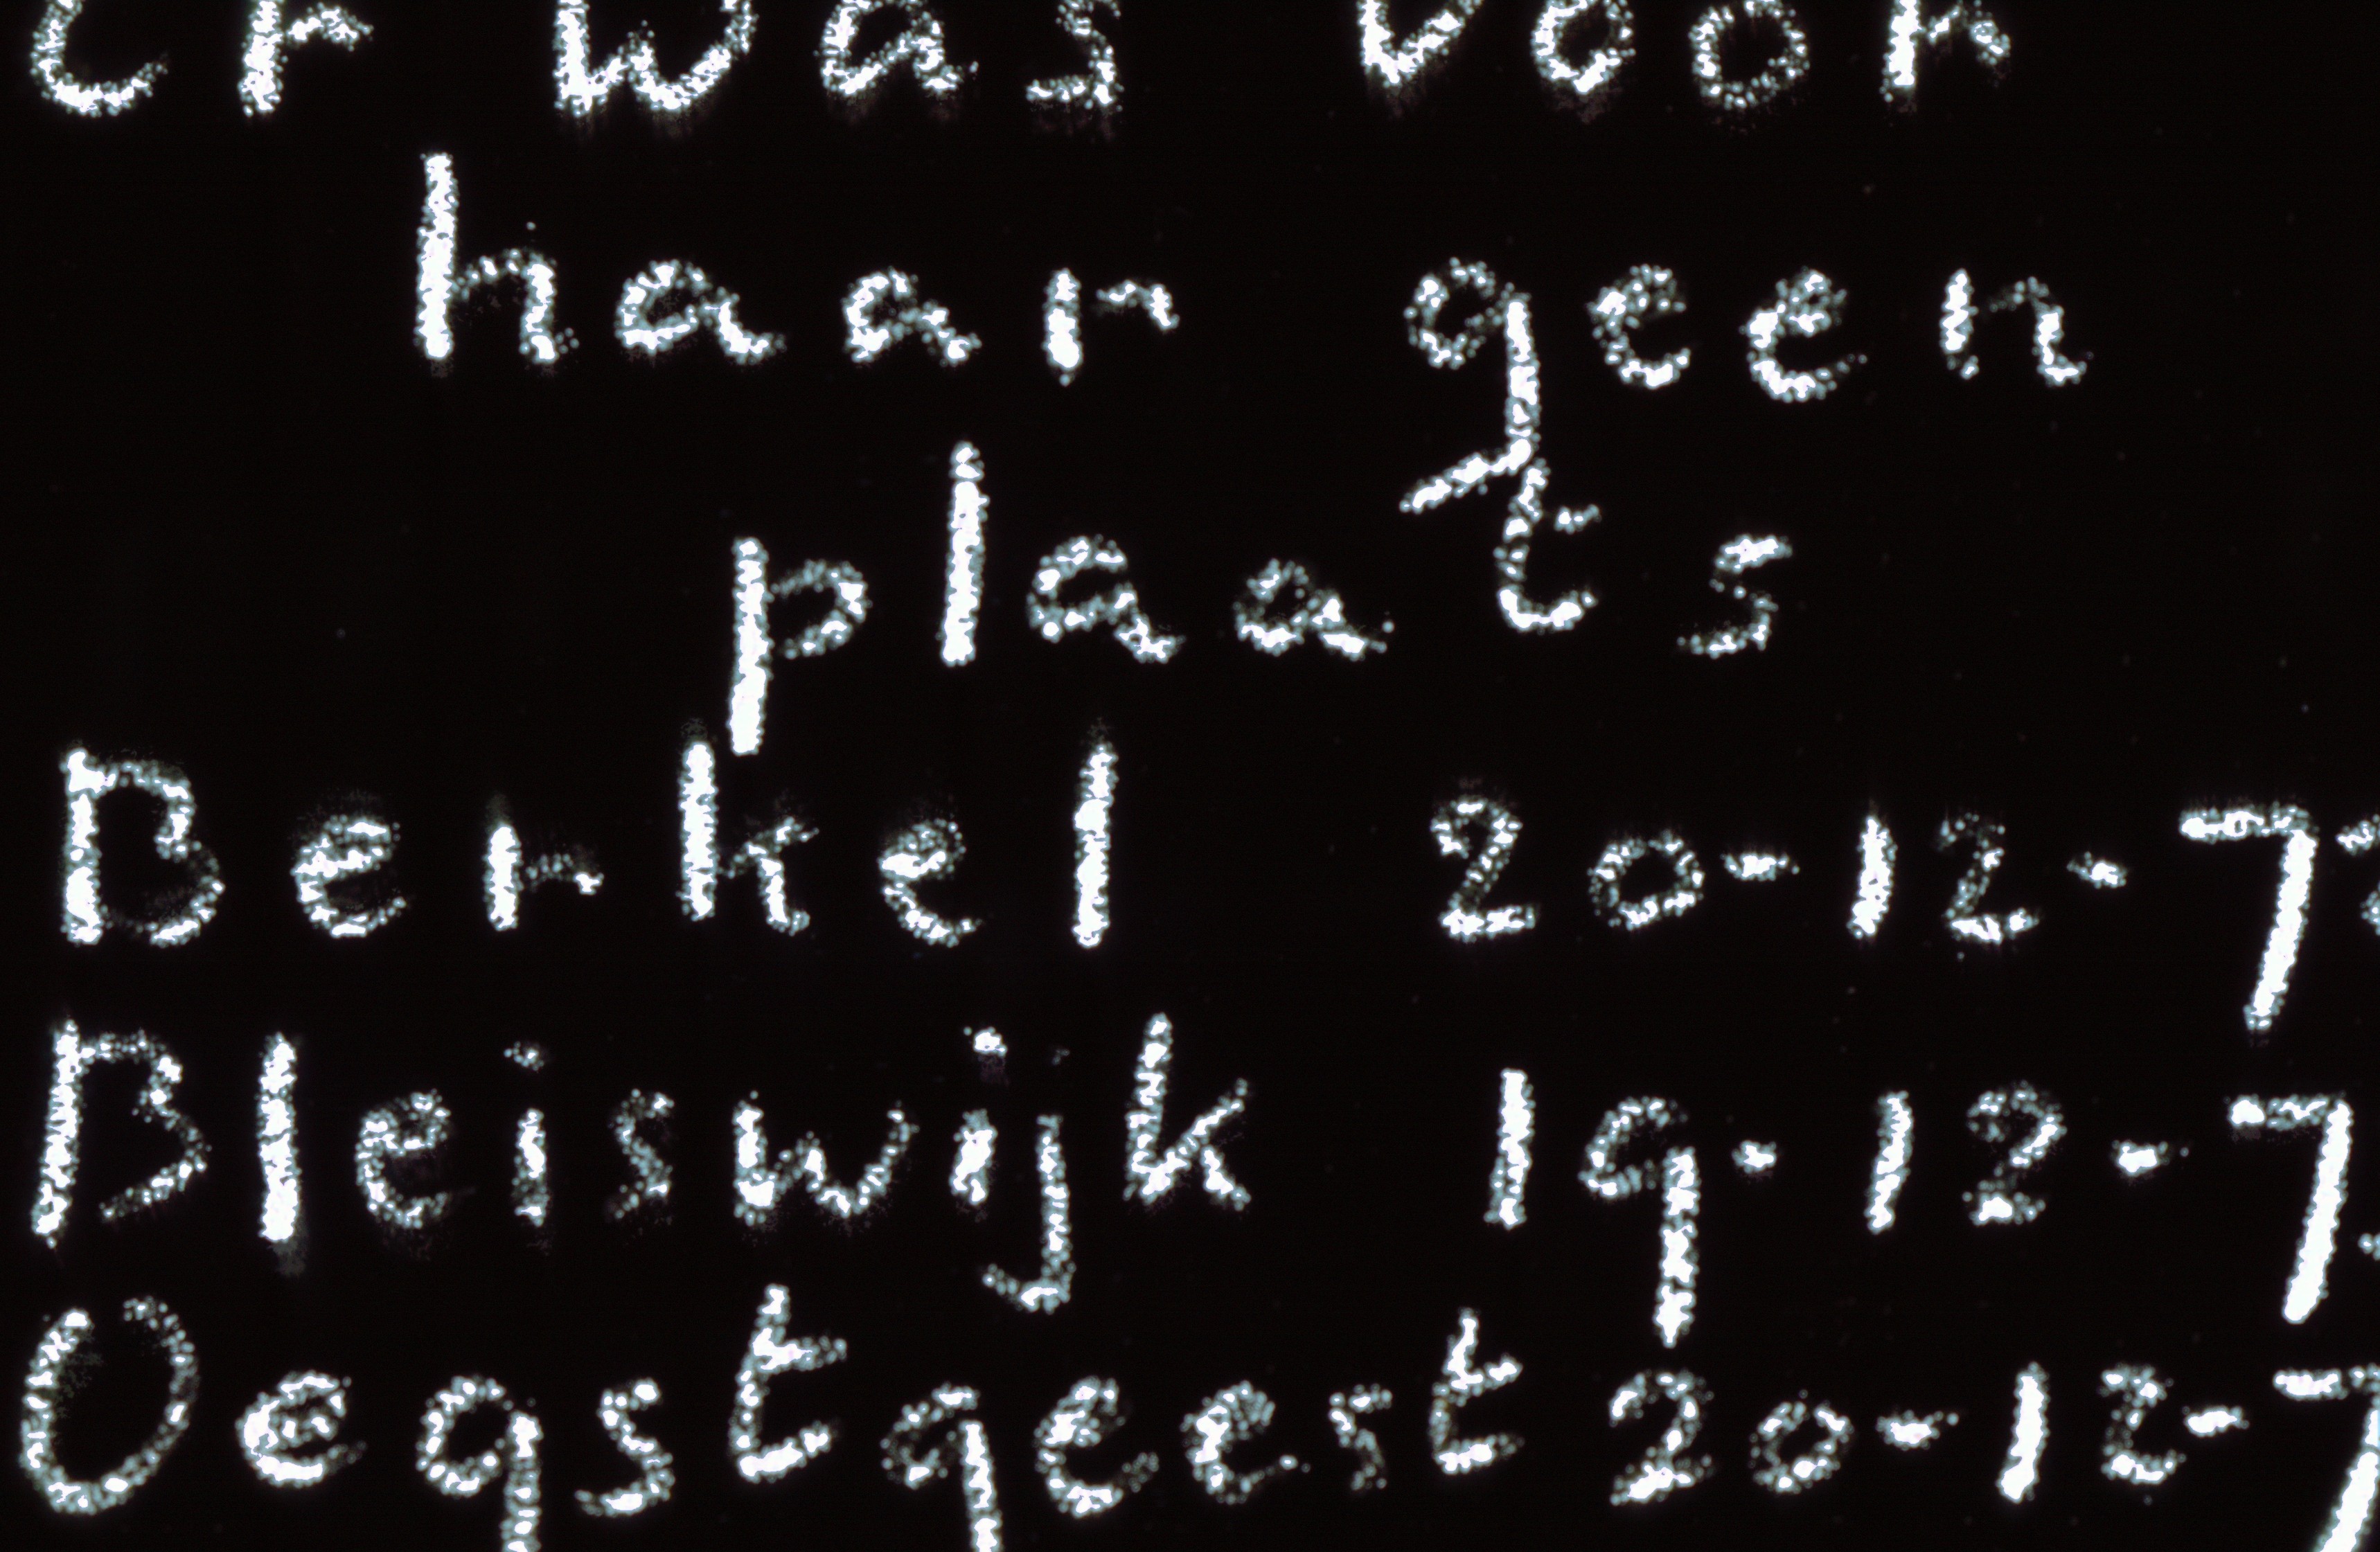 Er was voor
haar geen
plaats
Berkel 20-12-7
Bleiswijk 19-12-7
Oegstgeest 20-12-7